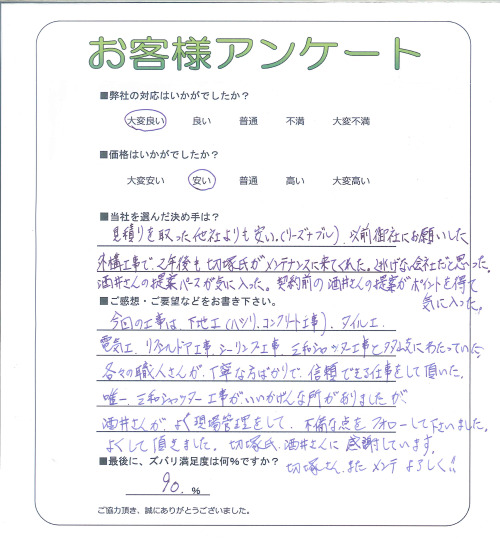 お客様アンケート
■弊社の対応はいかがでしたか？
大変良い 良い 普通 不満 大変不満
■価格はいかがでしたか？
大変安い 安い 普通 高い 大変高い
■当社を選んだ決め手は？
見積りを取った他社よりも安い。(リーズナブル)、以前御社にお願いした
外構工事で、2年後も切塚氏がメンテナンスに来てくれた。逃げない会社だと思った。
酒井さんの提案パースが気に入った。契約前の酒井さんの提案がポイントを得て
気に入った。
■ご感想・ご要望などをお書き下さい。
今回の工事は、下地工(ハツリ、コンクリート工事)、タイル工、
電気工、リフォルドア工事、シーリング工事、三和シャッター工事と多岐にわたっていた
各々の職人さんが、丁寧な方ばかりで、信頼できる仕事をして頂いた。
唯一、三和シャッター工事がいいかげんな所がありましたが
酒井さんが、よく現場管理をして、不備な点をフォローして下さいました。
よくして頂きました。切塚氏、酒井さんに感謝しています。
切塚さん、またメンテよろしく!!
■最後に、ズバリ満足度は何%ですか？
90. %
ご協力頂き、誠にありがとうございました。